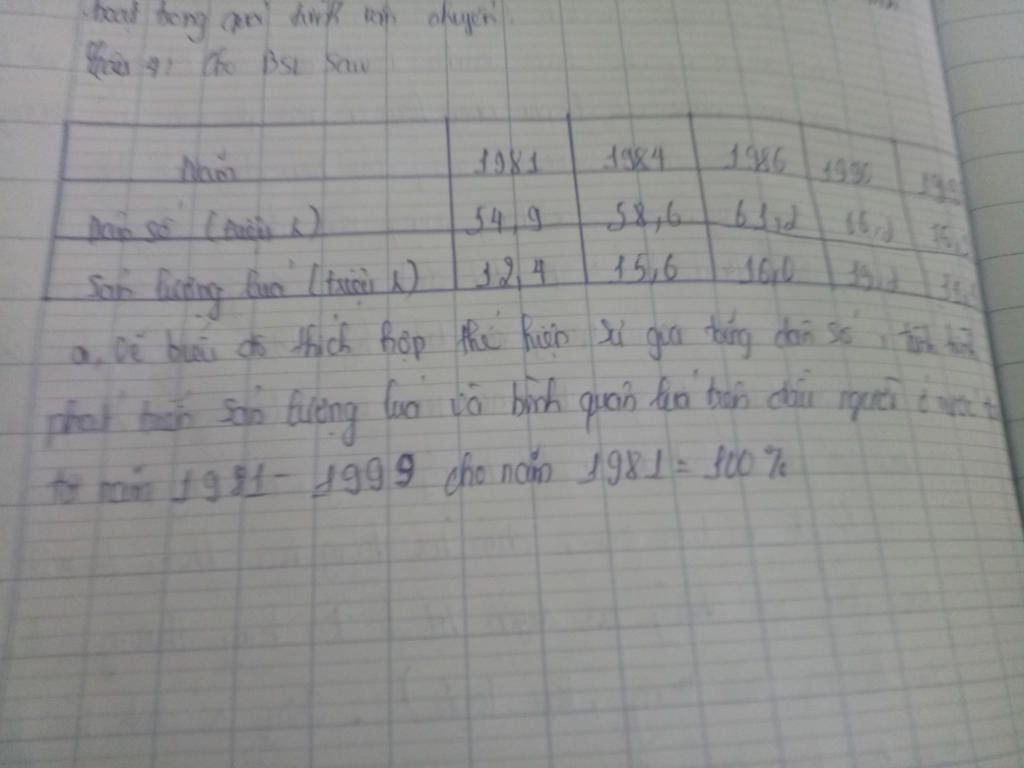 hoạt trong quá trình vận chuyển
Câu 4: Cho BSL sau
Năm 1981 1984 1986 1990
Dân số (triệu 54,9 58,6 61,2 66,2
Sản lượng lúa (triệu 12,4 15,6 16,0 19,2
a, vẽ biểu đồ thích hợp thể hiện sự gia tăng dân số, tình hình
phát triển sản lượng lúa và bình quân lúa trên đầu người ở nước ta
từ năm 1981 - 1999 cho năm 1981 = 100%